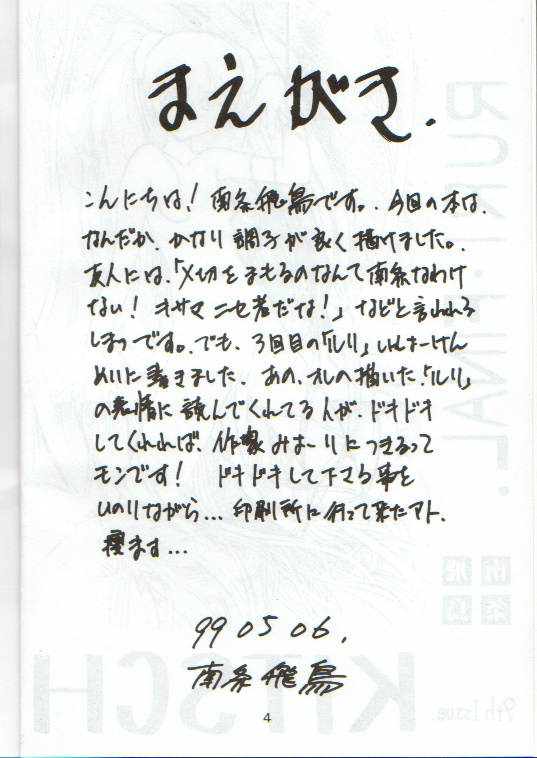 まえがき.
こんにちは! 南条飛鳥です。今回の本は、
なんだか、かなり調子が良く描けました。
友人には、「〆切をまもるのなんて南条なわけ
ない! キサマニセ者だな!」などと言われる
しまつです。でも、3回目の「ルリ」いっしょーけん
めいに書きました。あの、オレの描いた「ルリ」
の表情に読んでくれてる人が、ドキドキ
してくれれば、作家みょーりにつきるって
モンです! ドキドキして下さる事を
いのりながら... 印刷所に行って来たアト、
寝ます...
99 05 06.
南条飛鳥
4
RURI・FINAL.
南条飛鳥
KITSCH
9th Issue.